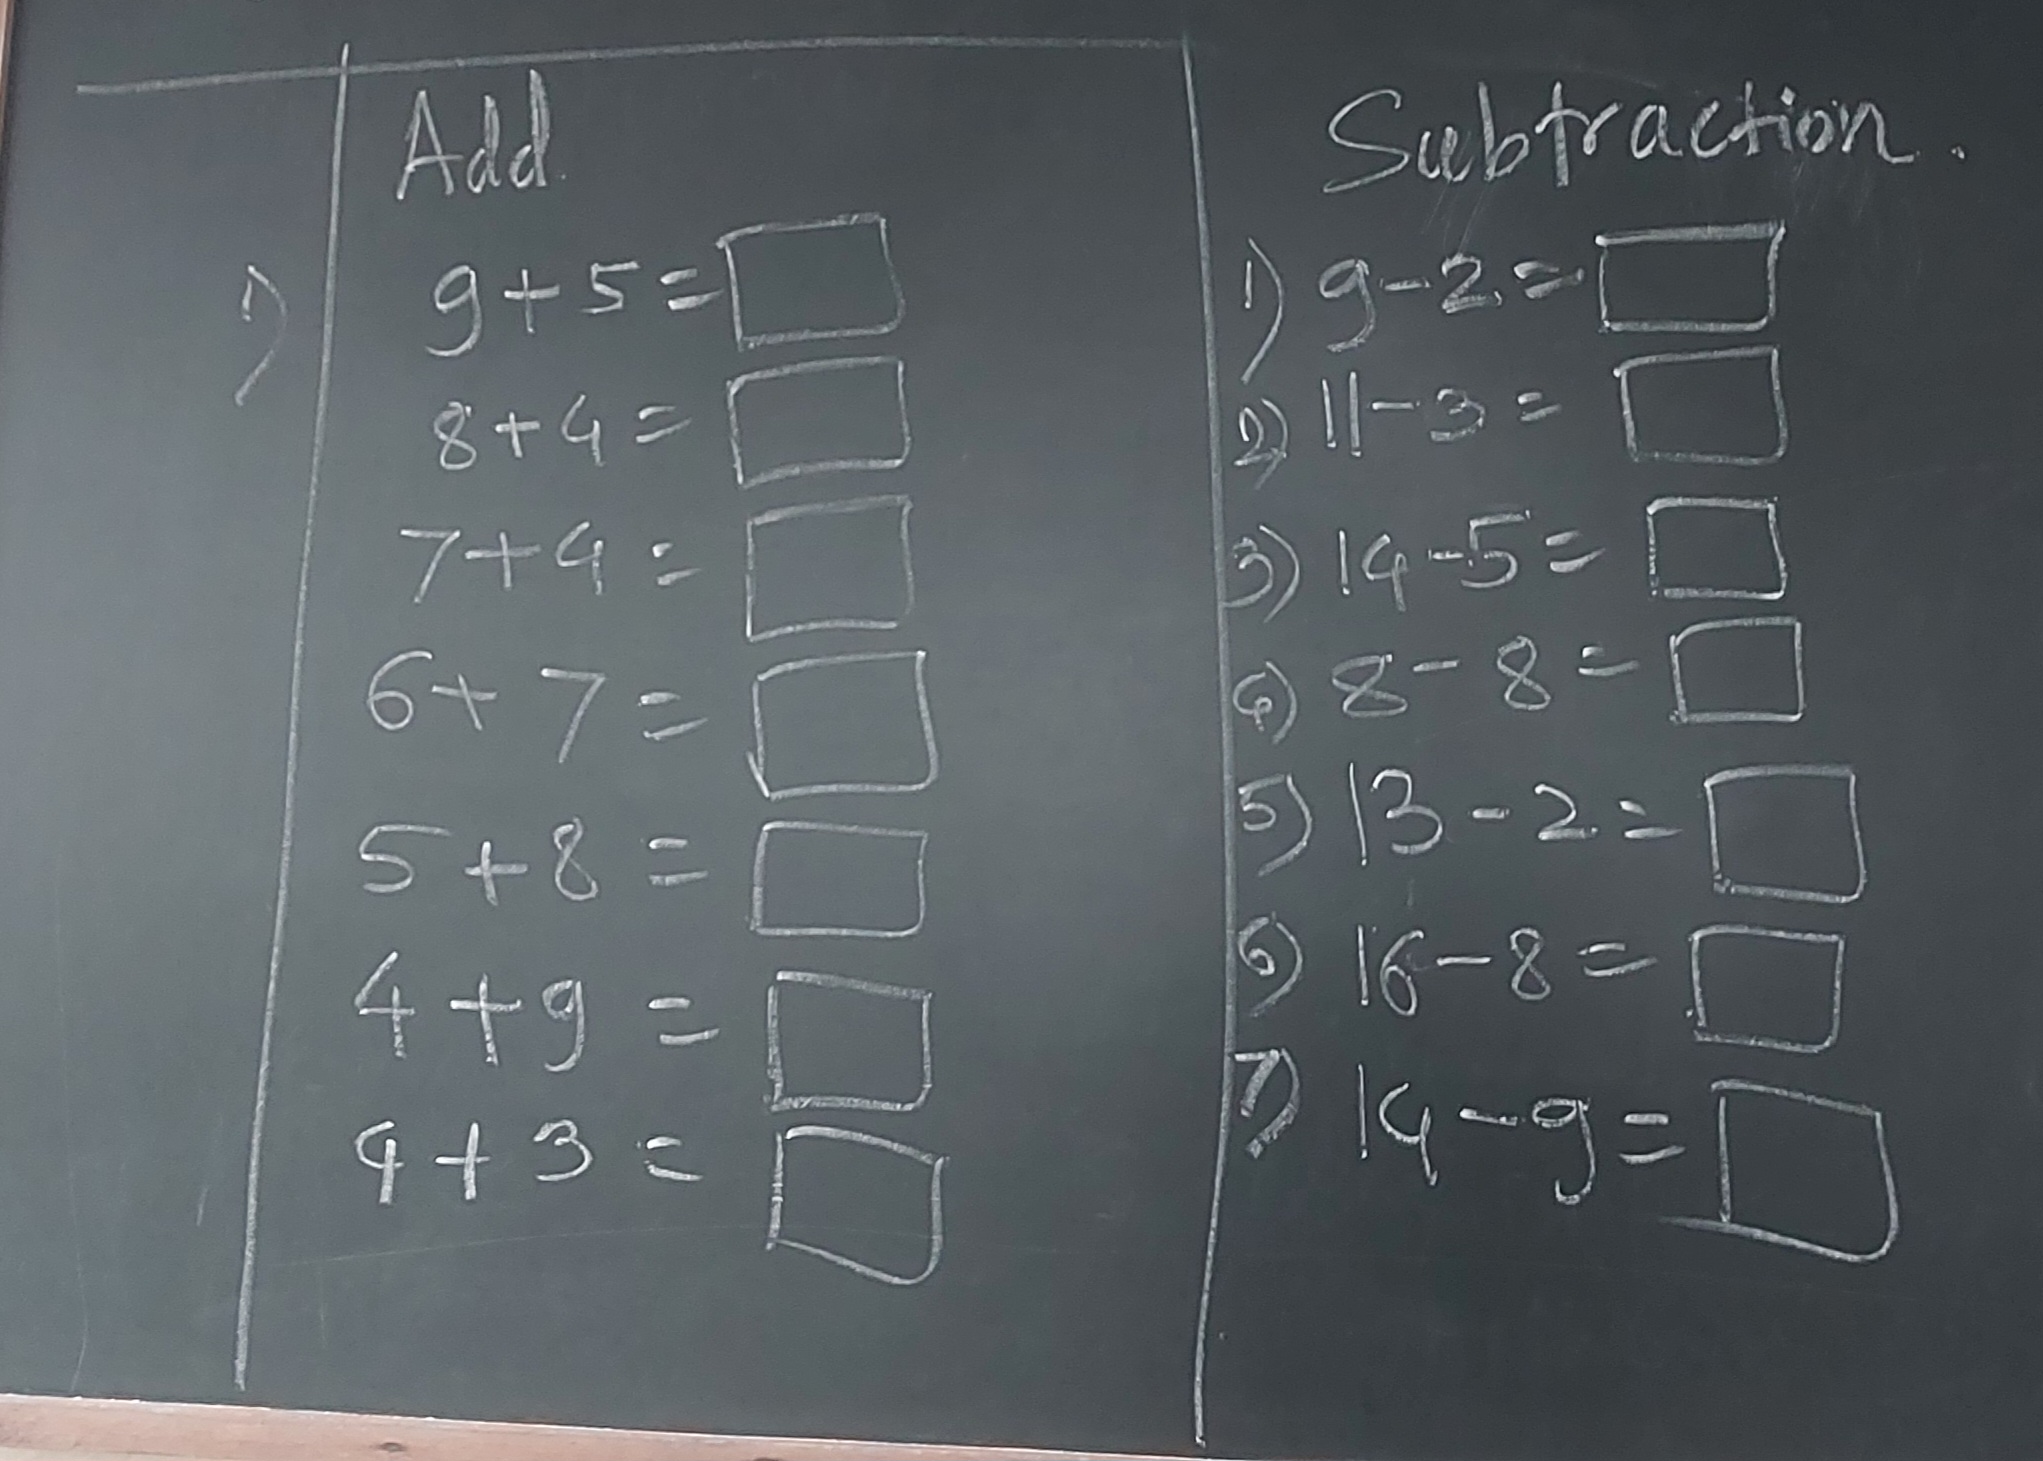 Add.
1) 9+5=
8+4=
7+4=
6+7=
5+8=
4+9=
4+3=
Subtraction.
1) 9-2=
2) 11-3=
3) 14-5=
4) 8-8=
5) 13-2=
6) 16-8=
7) 14-9=